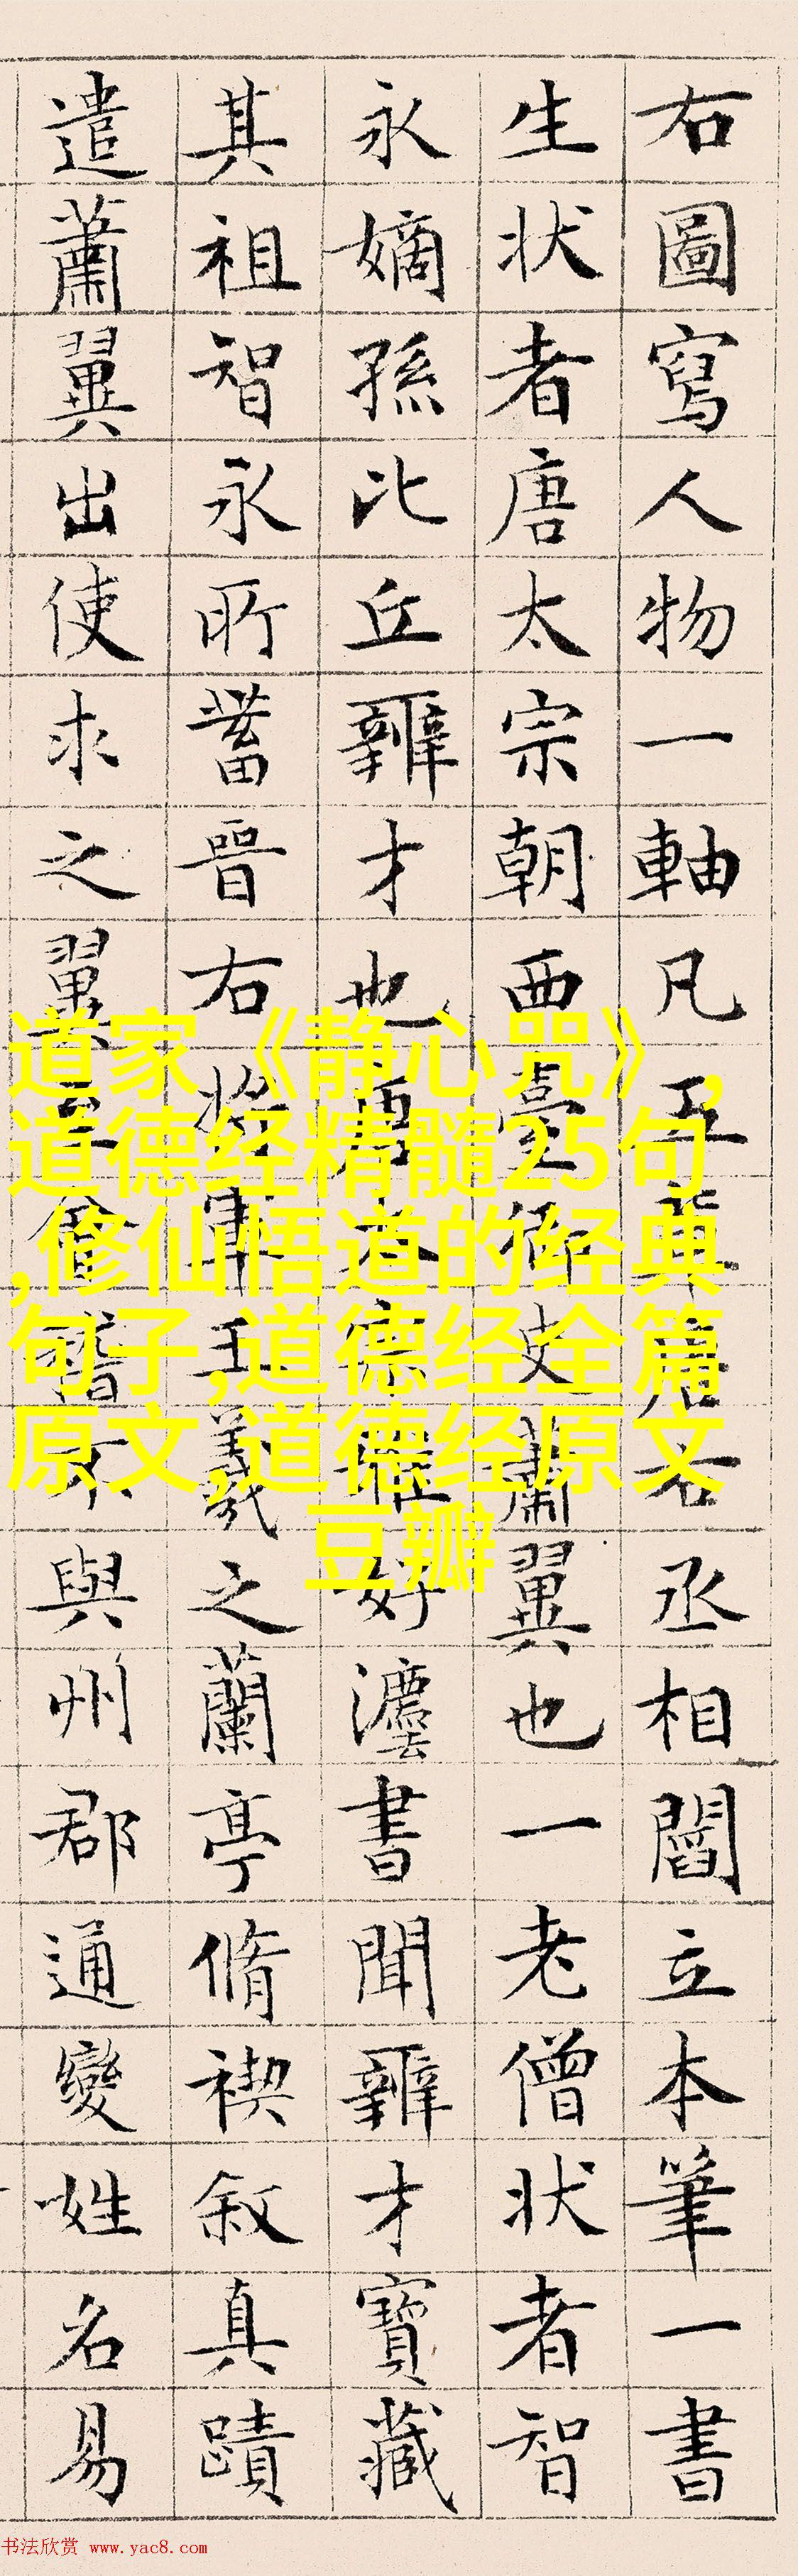 右圖寫人物一軸凡五輩唐右丞相閻立本筆一書
生状者唐太宗朝西臺御史蕭翼也一老僧状者智
永嫡孫比丘辯才也唐太宗雅好灋書聞辯才寶藏
其祖智永所蓄晉右將軍王羲之蘭亭脩禊叙真蹟
遣蕭翼出使求之翼至會稽不與州郡通變姓名易
道家《静心咒》,
道德经精髓25句
,修仙悟道的经典
句子,道德经全篇
原文,道德经原文
豆瓣
书法欣赏 www.yac8.com